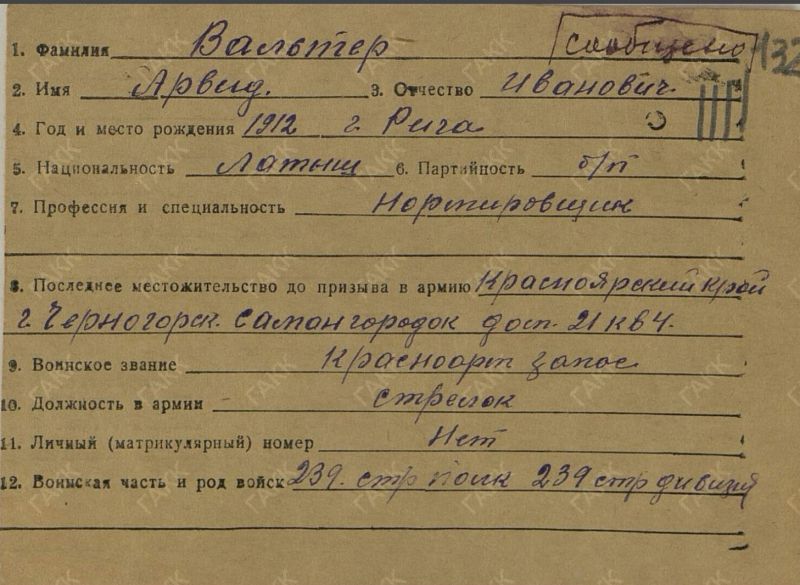 1. Фамилия Вальтер Сообщено 132
2. Имя Арвид. 3. Отчество Иванович.
4. Год и место рождения 1912 г. Рига
5. Национальность Латыш 6. Партийность б/п
7. Профессия и специальность Нормировщик
8. Последнее местожительство до призыва в армию Красноярский край
г. Черногорск. Самангородок дом. 21 кв 4.
9. Воинское звание Красноарм запас
10. Должность в армии стрелок
11. Личный (матрикулярный) номер Нет
12. Воинская часть и род войск 239. стр полк 239 стр дивизия